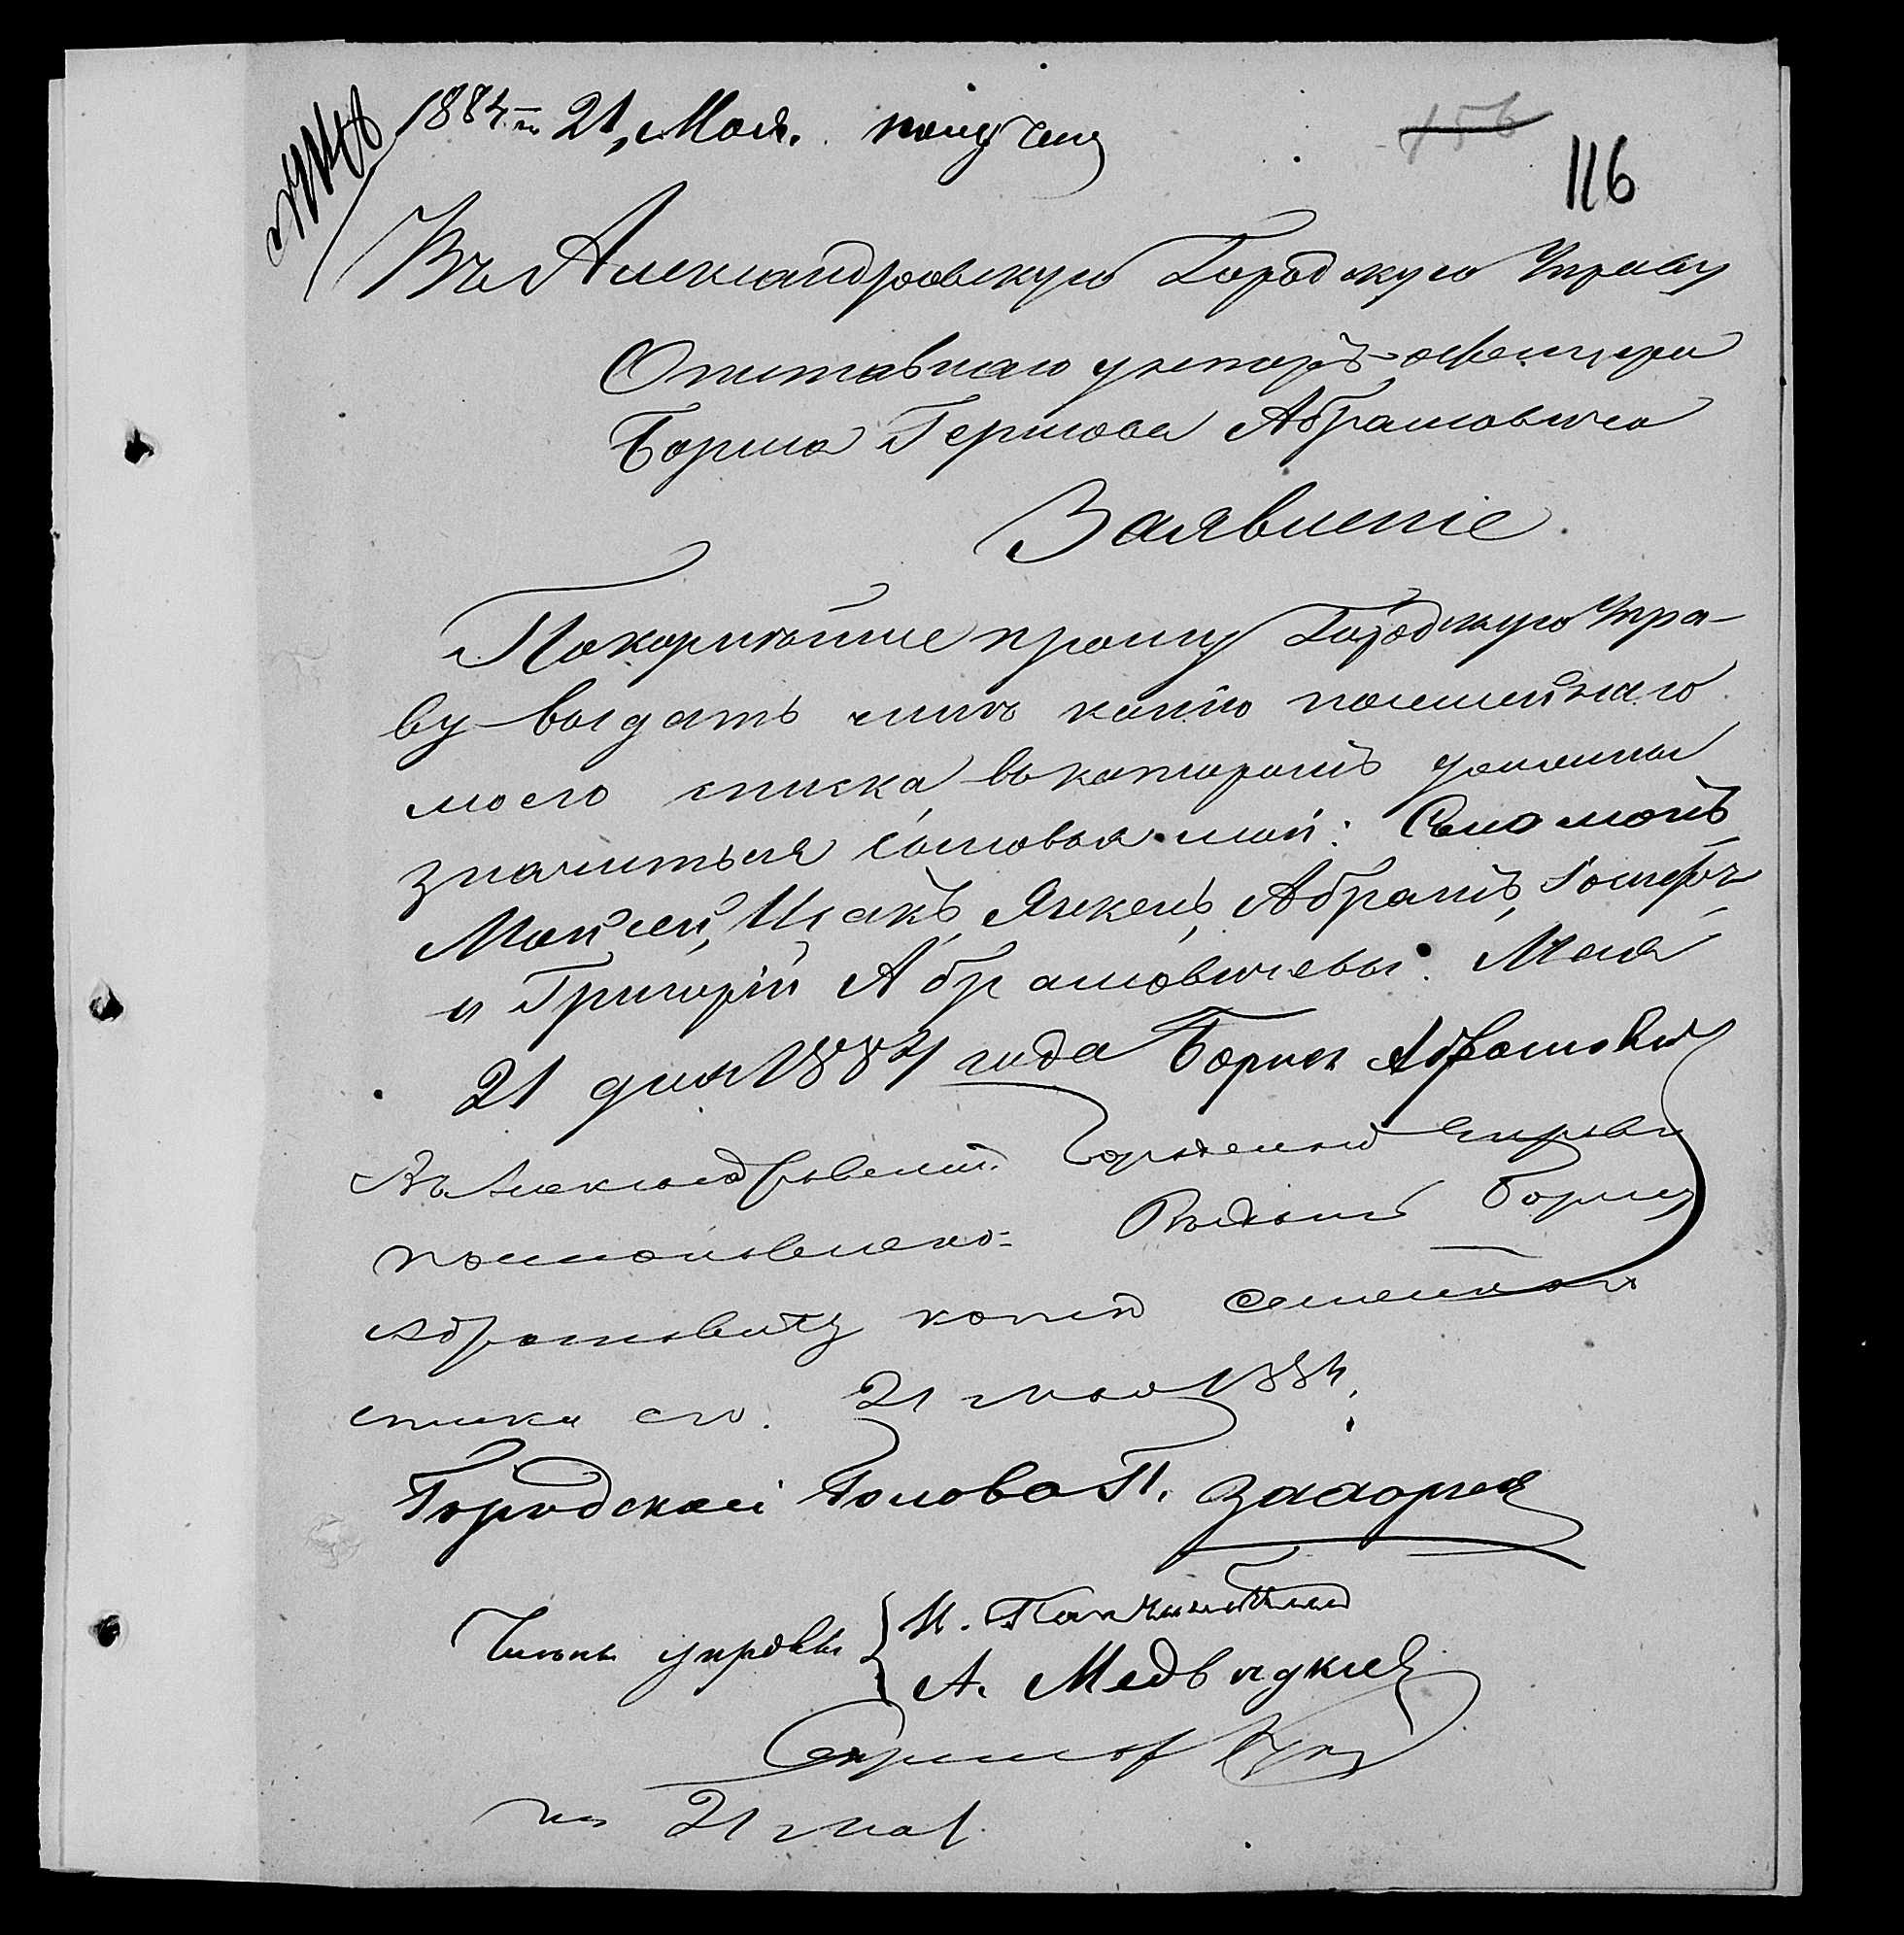 1884 г. 21 Мая. получена
156
116
Въ Александровскую Городскую Управу
Отставнаго унтеръ-офицера
Бориса Гершова Абрамовича
Заявленіе.
Покорнѣйше прошу Городскую Упра-
ву выдать мнѣ копію посемейнаго
моего списка, въ которомъ
значиться сыновья мои: Соломонъ,
Мойсей, Исакъ, Янкель, Абрамъ, Іосифъ
и Григорій Абрамовичевы. Мая
21 дня 1884 года Борисъ Абрамовичъ
Въ Александровской Городской Управѣ
постановлено: Выдать Борису
Абрамовичу копію семейнаго
списка его. 21 мая 1884.
Городской Голова П. Захарьев
Члены управы { И.
А. Медвѣдкинъ
Секретарь
21 мая